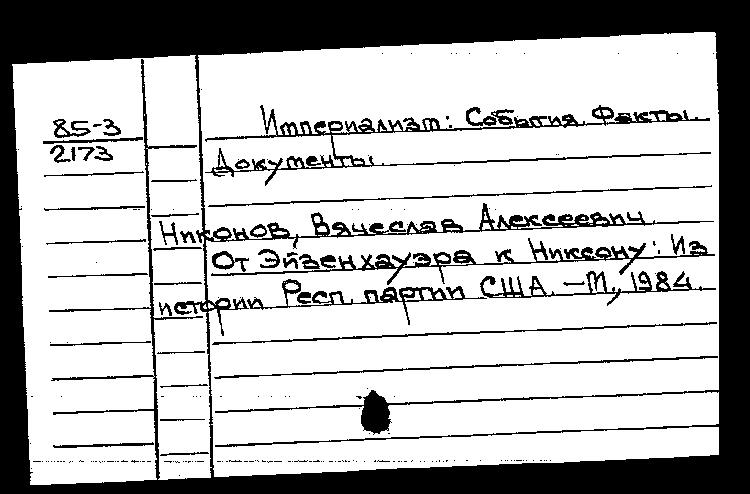 85-3
2173
Империализм: События. Факты.
Документы.
Никонов, Вячеслав Алексеевич
От Эйзенхауэра к Никсону: Из
истории Респ. партии США. – М., 1984.